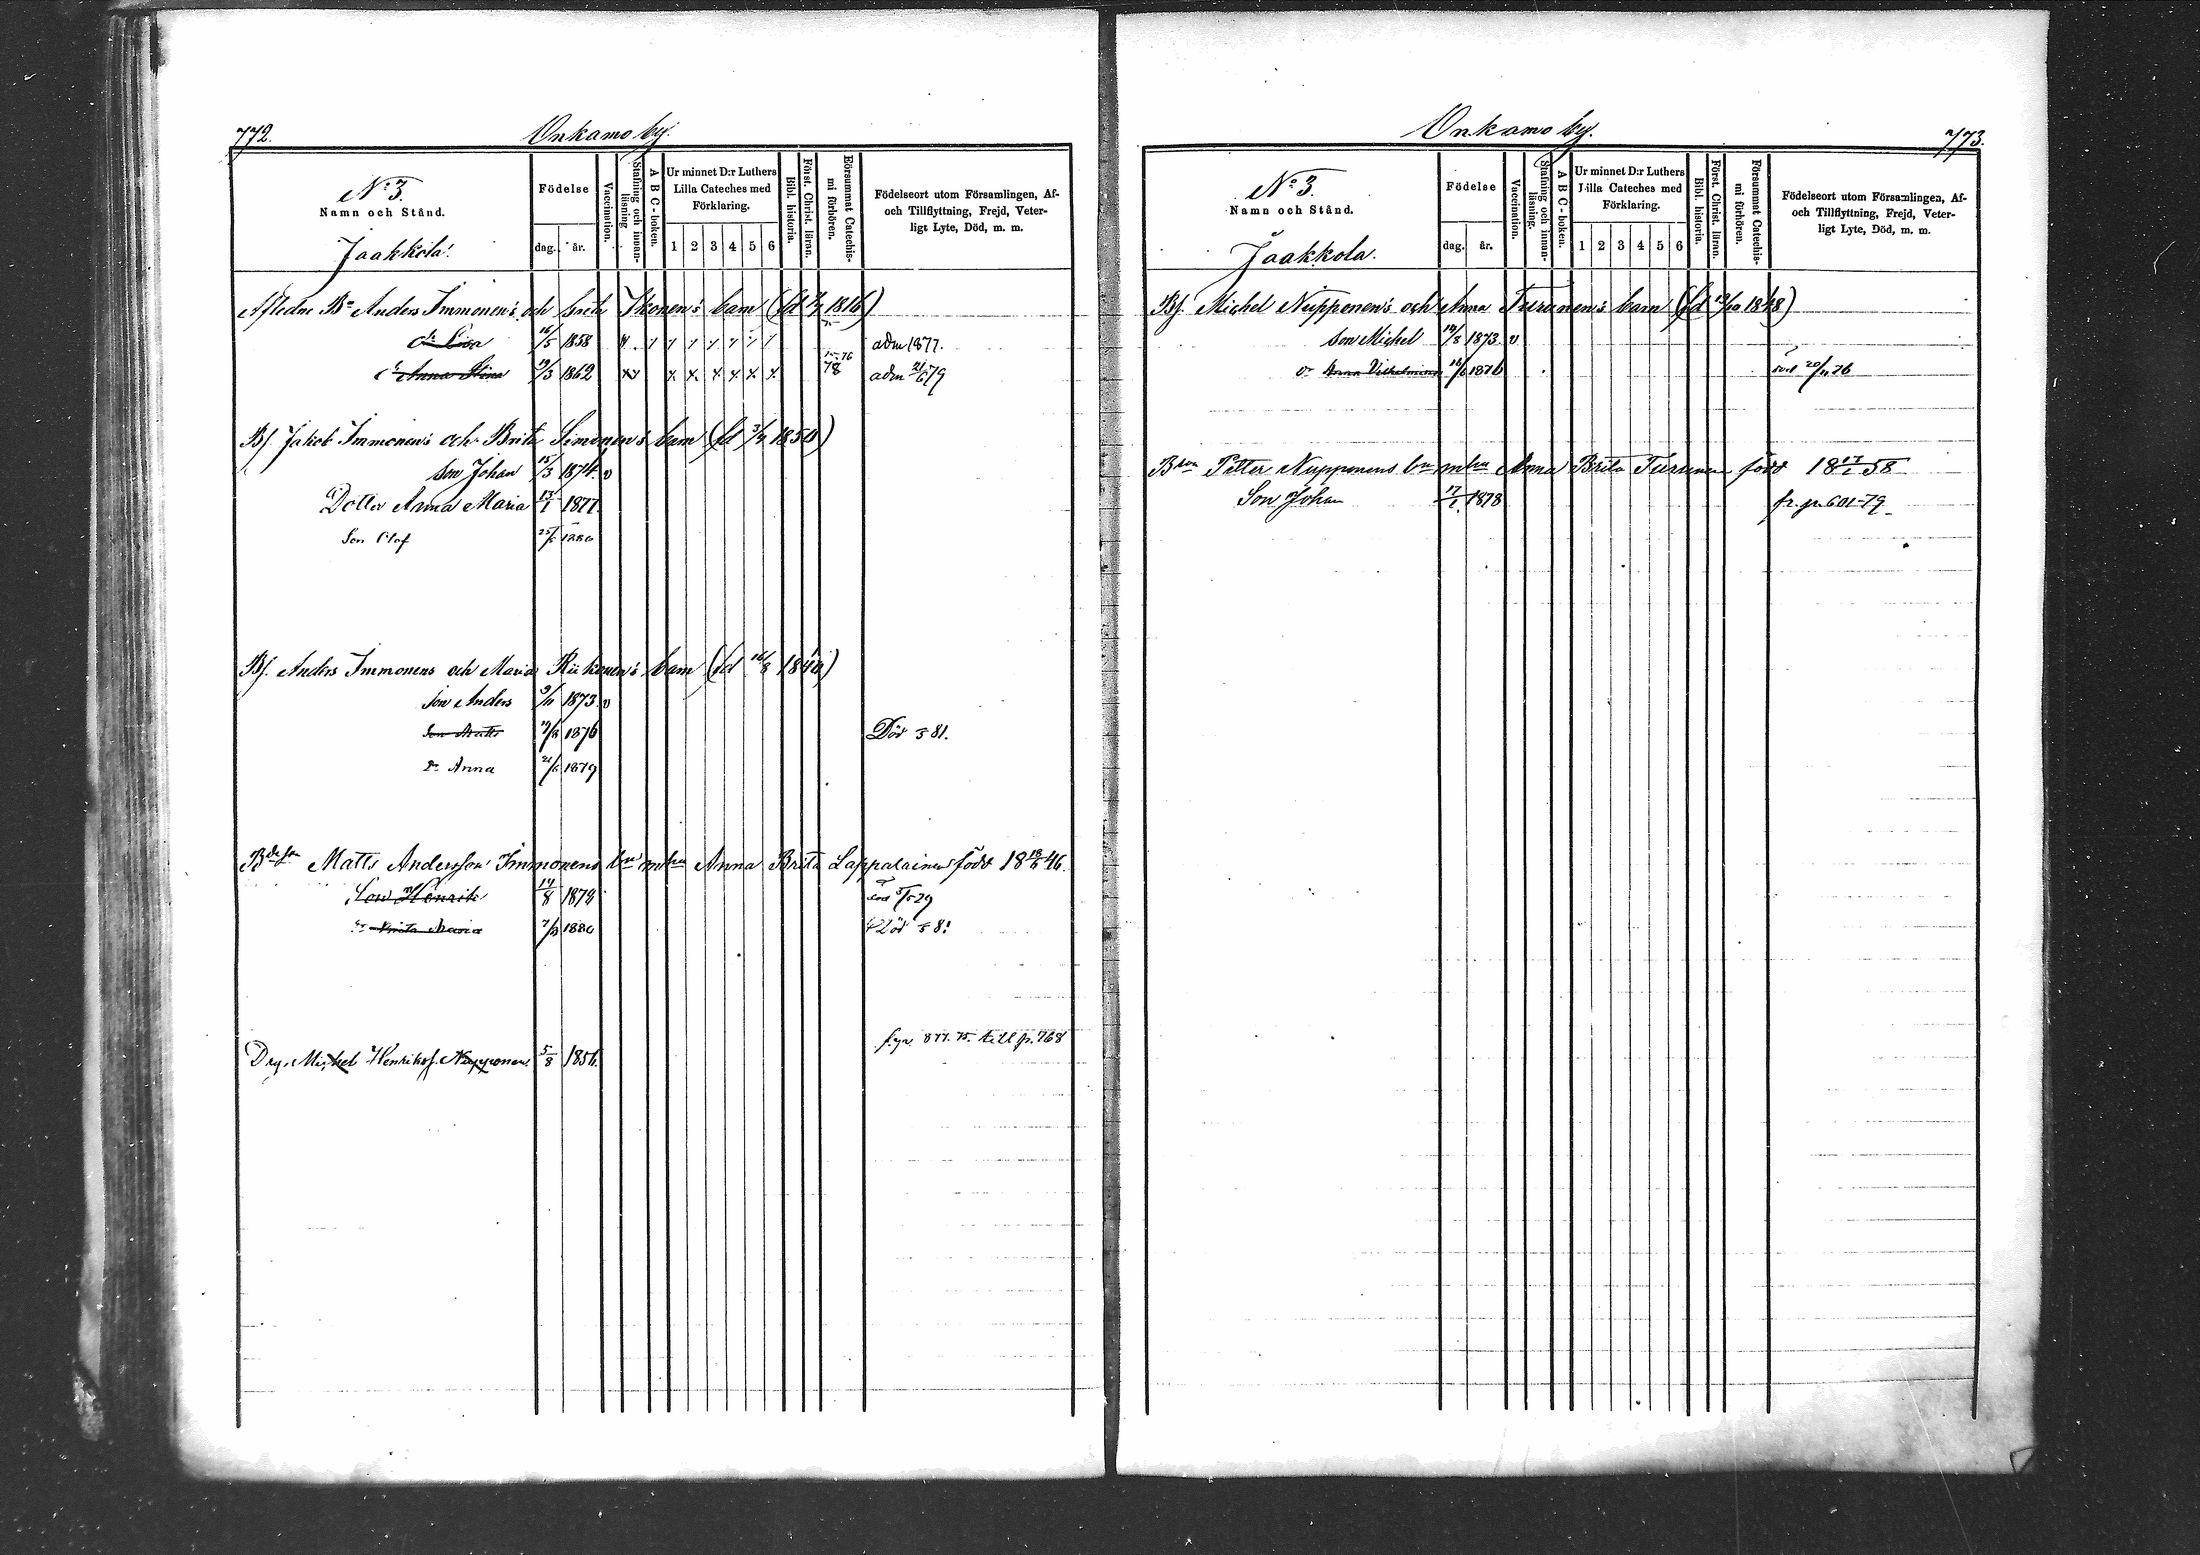 772.
Onkamo by.
No 3.
Namn och Stånd.
Jaakkola.
Födelse
dag.
år.
Vaccination.
Stafning och innan-
läsning
A B C-boken.
Ur minnet D:r Luthers
Lilla Cateches med
Förklaring.
1 2 3 4 5 6
Bibl. historia.
Först. Christ. läran.
Försummat Catechis-
mi förhören.
Födelseort utom Församlingen, Af-
och Tillflyttning, Frejd, Veter-
ligt Lyte, Död, m. m.
Afledne Bo Anders Immonen's och Brita Ikonen's barn (fd 1816)
dr Lisa 16/5 1858 adm 1877.
dr Anna Stina 19/3 1862 x x x x x x 78 adm 21/6 79
Bf. Jakob Immonen's och Brita Simonen's barn (fd 3/7 1850)
Son Johan 15/3 1874. v
Dotter Anna Maria 13/1 1877.
Son Olof 25/5 1880
Bf. Anders Immonens och Maria Riikonen's barn (fd 16/8 1840)
Son Anders 9/11 1873 v
Son Matts 19/8 1876 Död 81.
Dr Anna 21/5 1879
Bdeson Matts Andersson Immonens bn mhu Anna Brita Lappalainen född 18 18/6 46.
Son Henrik 14/8 1879
dr Brita Maria 7/3 1880 Död
fr. p. 877. 75. till p. 768
Drg. Michel Henrikss. Nupponen. 5/8 1856.
Onkamo by.
773.
No 3.
Namn och Stånd.
Jaakkola.
Födelse
dag.
år.
Vaccination.
Stafning och innan-
läsning.
A B C-boken.
Ur minnet D:r Luthers
Lilla Cateches med
Förklaring.
1 2 3 4 5 6
Bibl. historia.
Först. Christ. läran.
Försummat Catechis-
mi förhören.
Födelseort utom Församlingen, Af-
och Tillflyttning, Frejd, Veter-
ligt Lyte, Död, m. m.
Bf. Michel Nupponen's och Anna Turunen's barn (fd 13/10 1848)
Son Michel 18/8 1873 v
dr Anna Vilhelmina 16/6 1876 död 20/11 76
Bson Petter Nupponens bn mhu Anna Brita Turunen född 18 17/1 58
Son Johan 17/1 1878 fr. p. 601-79